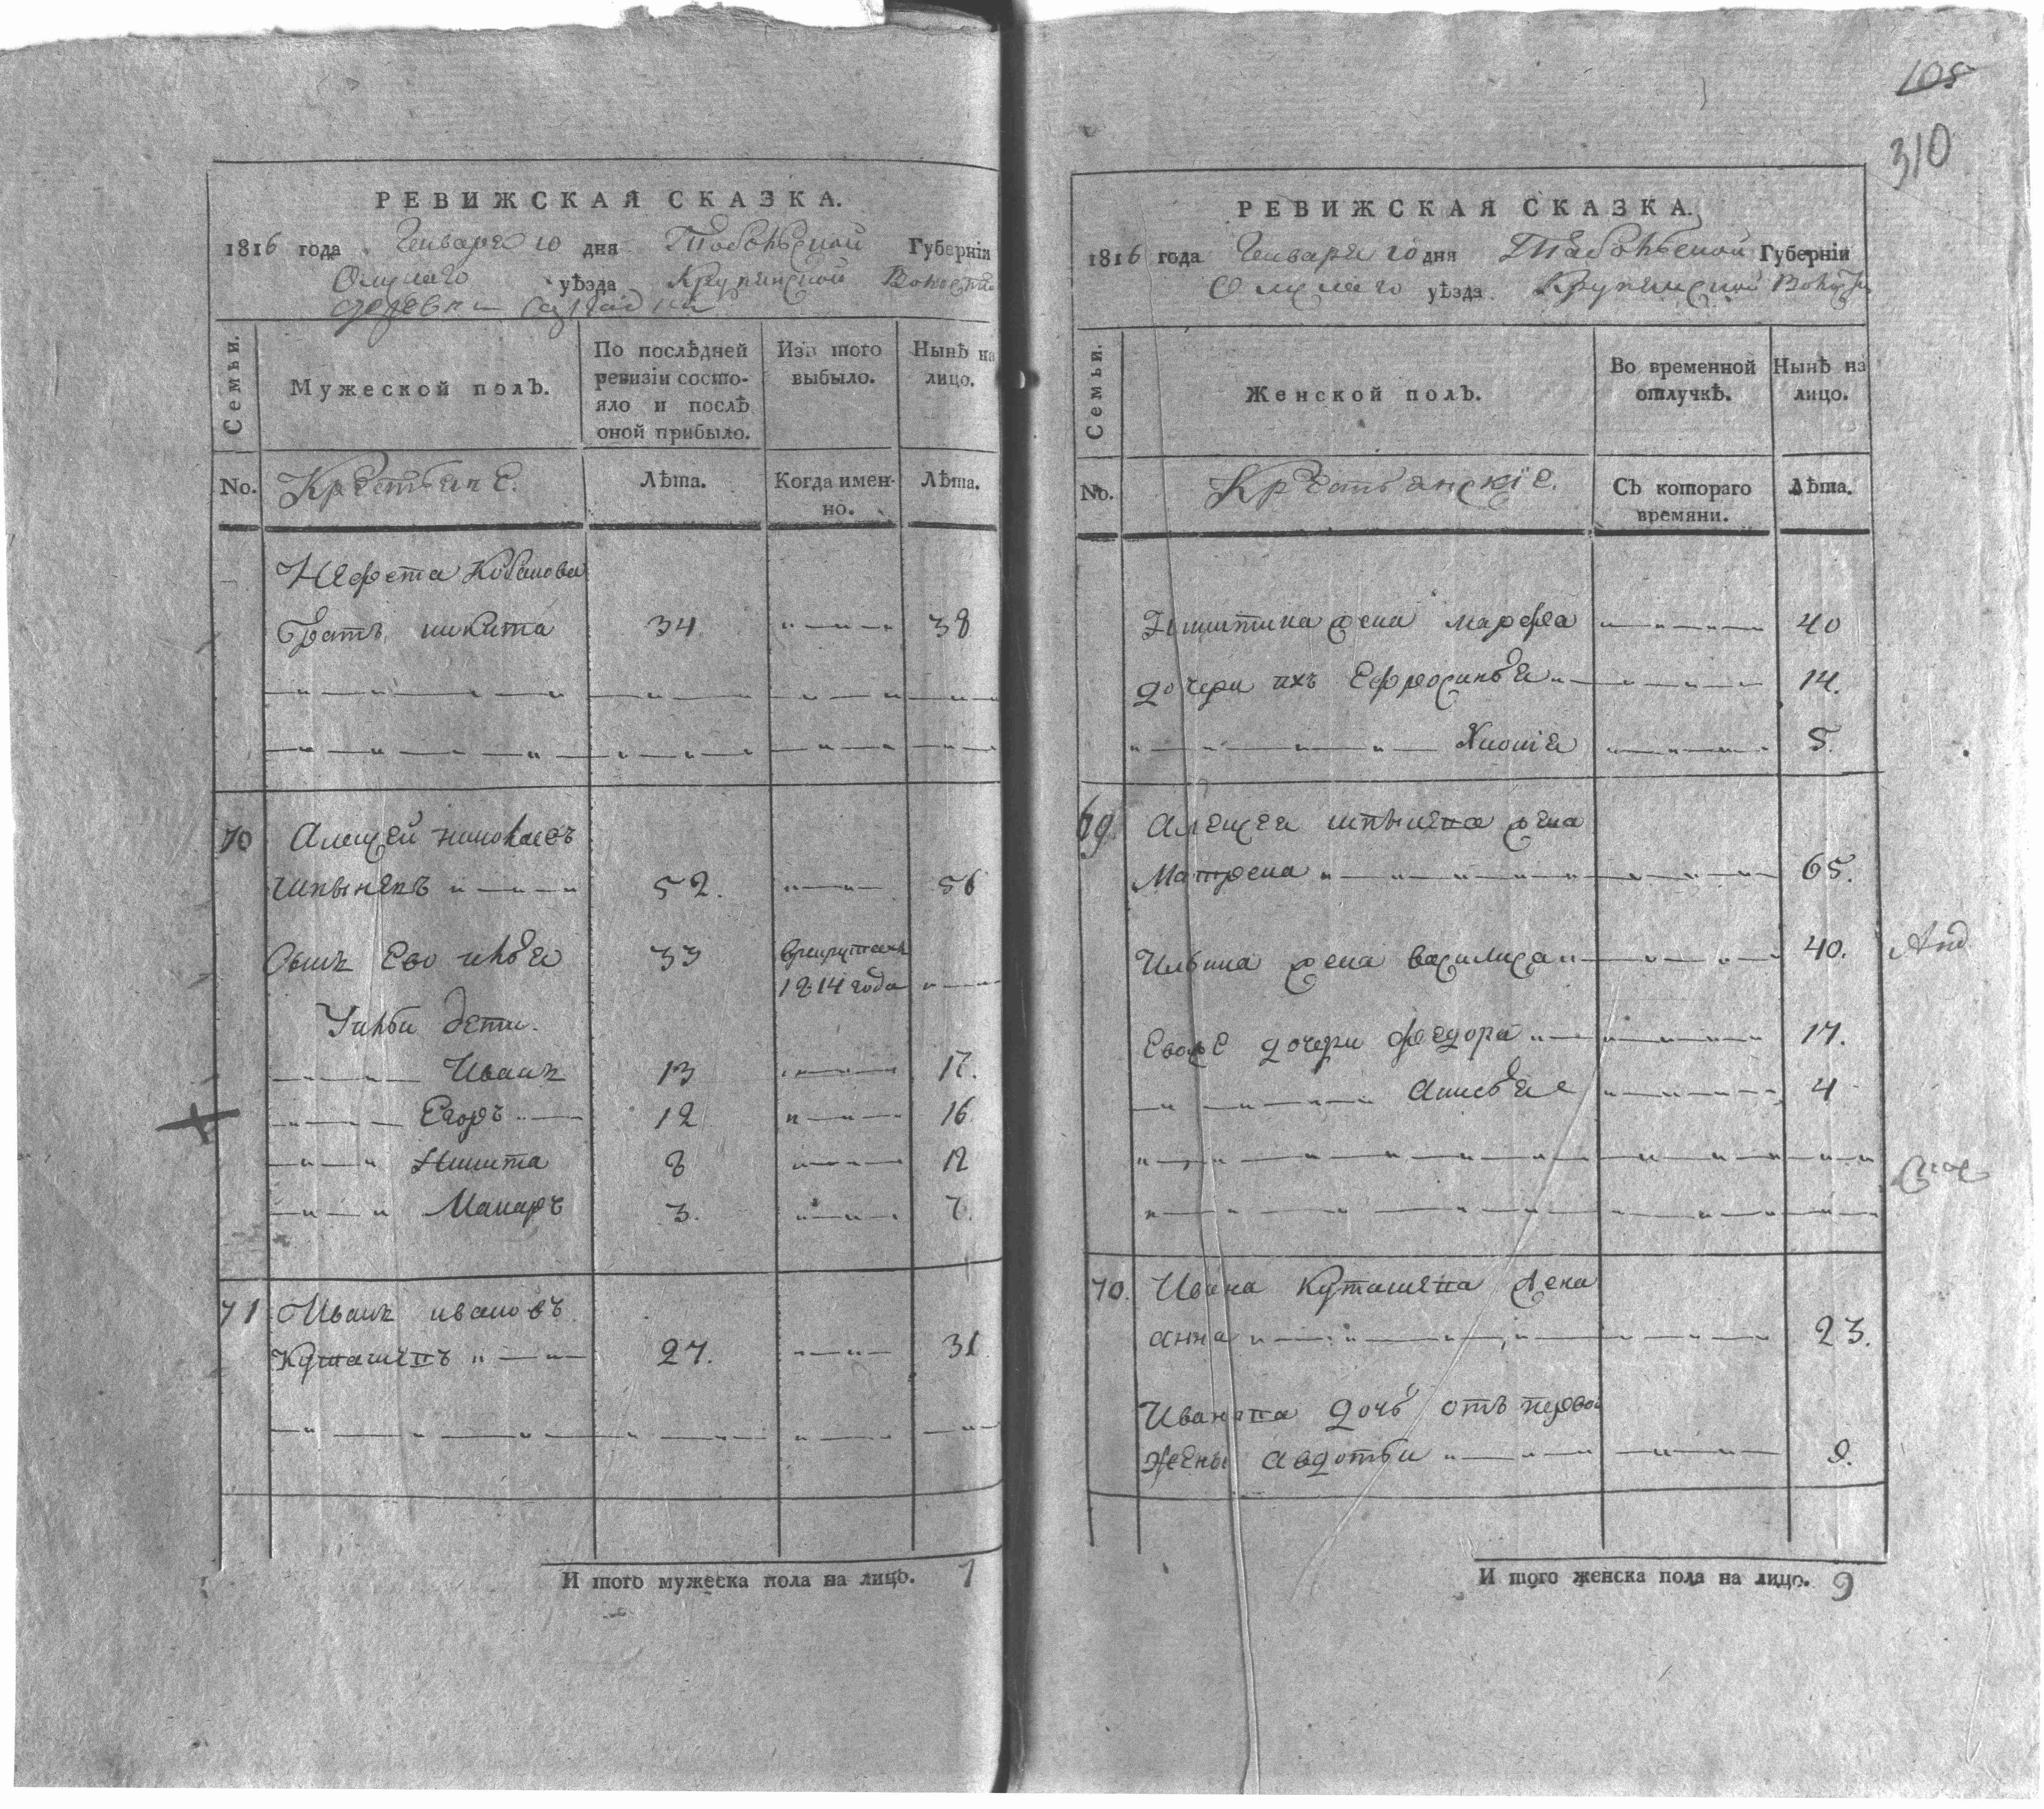 105
310
РЕВИЖСКАЯ СКАЗКА.
1816 года Генваря 10 дня Тобольской Губерніи
Омскаго уѣзда Крупянской Волости
деревни
Семьи. Мужеской полъ. По послѣдней ревизіи состо-яло и послѣ оной прибыло. Изъ того выбыло. Нынѣ на лицо.
No. Крестьяне. Лѣта. Когда имен-но. Лѣта.
Нефета Кабанова
братъ никита 34. 38
70 Алексей николаевъ
Шпынепъ 52. 56
Сынъ Ево илья 33 врекрутахъ
1814 года
Уильи дети.
Иванъ 13 17.
Егоръ 12 16
Никита 8 12
Макаръ 3. 7.
71 Иванъ ивановъ
Куташепъ 27. 31
И того мужеска пола на лицо. 7
РЕВИЖСКАЯ СКАЗКА.
1816 года Генваря 10 дня Тобольской Губерніи
Омскаго уѣзда Крупянской Волости
Семьи. Женской полъ. Во временной отлучкѣ. Нынѣ на лицо.
No. Крестьянскіе. Съ котораго времяни. Лѣта.
Никитина жена марфа 40
дочери ихъ Ефросинья 14.
Хионія 5.
69. Алексея шпынепа жена
Матрена 65.
Ильина жена василиса 40.
Евоже дочери федора 17.
анисья 4
70. Ивана Куташепа жена
анна 23.
Иванапа дочь отъ первой
жены авдотьи 9.
И того женска пола на лицо. 9